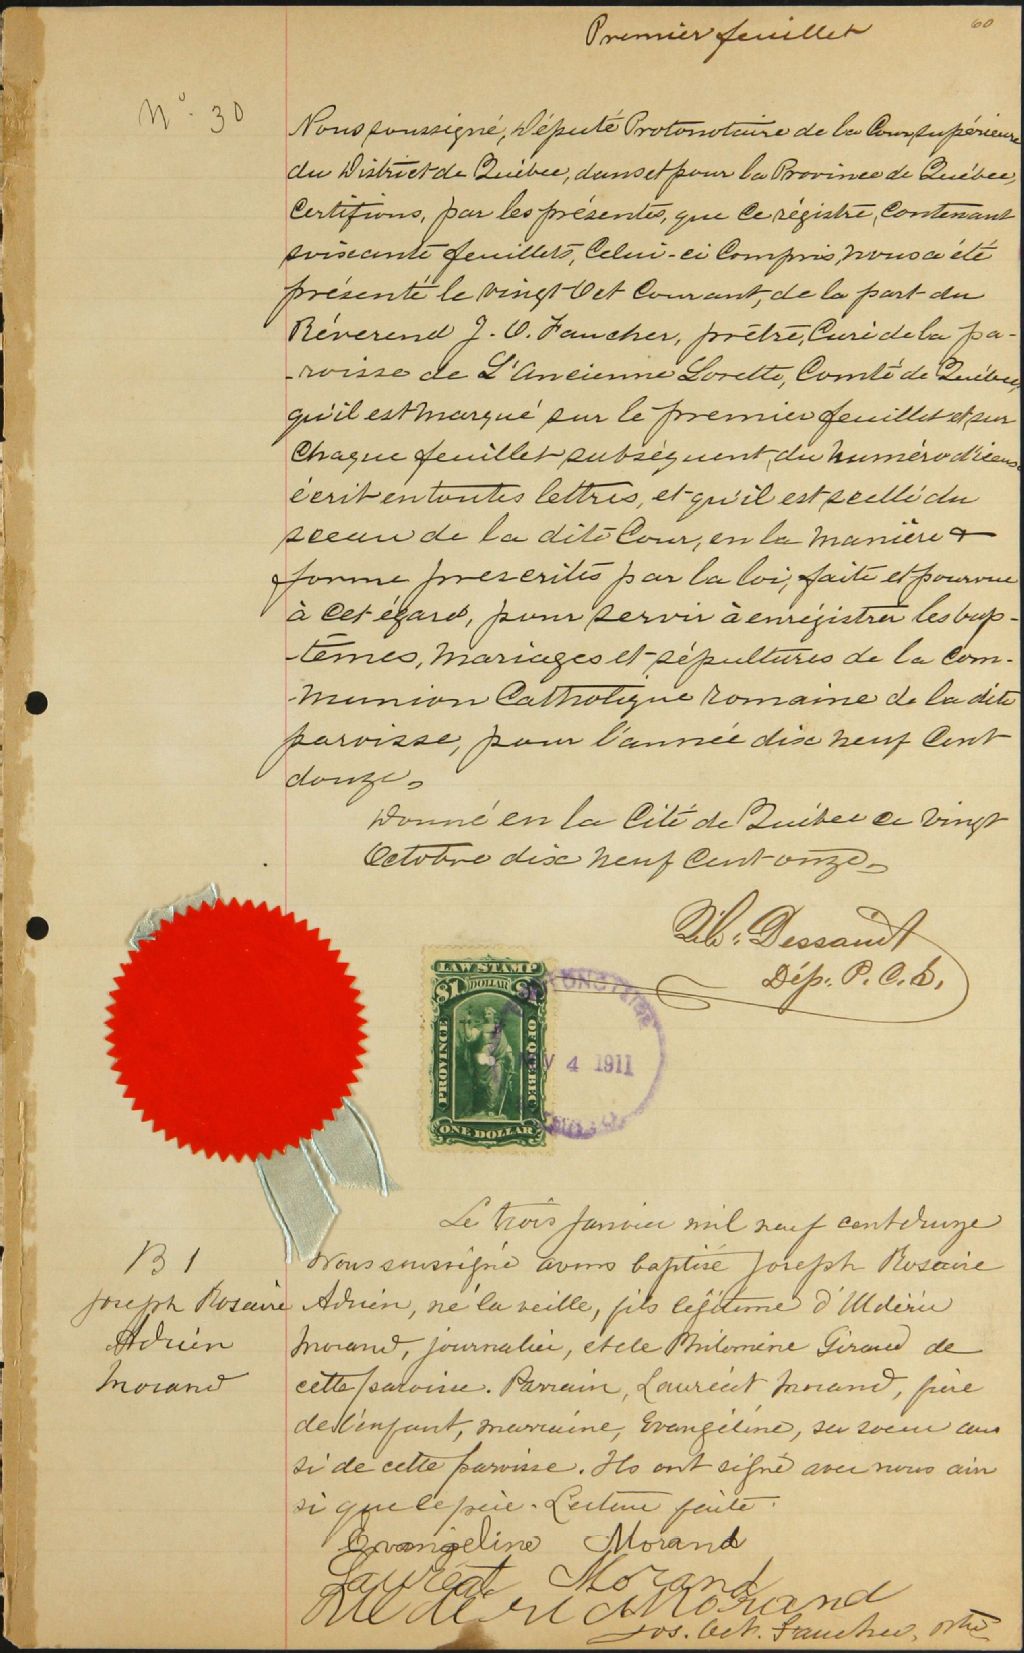 60
Premier feuillet
No. 30
Nous soussigné, Député Protonotaire de la Cour supérieure
du District de Québec, dans et pour la Province de Québec,
Certifions, par les présentes, que ce régistre, contenant
soixante feuillets, Celui-ci Compris, nous a été
présenté le vingt Oct Courant, de la part du
Révérend J. O. Faucher, prêtre, Curé de la pa-
-roisse de L'Ancienne Lorette, Comté de Québec,
qu'il est marqué sur le premier feuillet et sur
Chaque feuillet subséquent, du numéro d'iceux
écrit en toutes lettres, et qu'il est scellé du
sceau de la dite Cour, en la manière &
forme prescrites par la loi, faite et pourvue
à cet égard, pour servir à enrégistrer les bap-
-têmes, mariages et sépultures de la Com-
-munion Catholique romaine de la dite
paroisse, pour l'année dix neuf Cent
douze.
Donné en la Cité de Québec ce vingt
Octobre dix neuf Cent onze.
Dessault
Dép. P. C. S.
LAW STAMP
$1 DOLLAR $1
PROVINCE OF QUEBEC
ONE DOLLAR
4 1911
Le trois Janvier mil neuf cent douze
B 1
Nous soussigné avons baptisé Joseph Rosaire
Joseph Rosaire
Adrien, né la veille, fils légitime d'Uldéric
Adrien
Morand, journalier, et de Philomène Giraud de
Morand
cette paroisse. Parrain, Lauréat Morand, frère
de l'enfant, marraine, Evangéline, sa soeur aus
si de cette paroisse. Ils ont signé avec nous ain
si que le père. Lecture faite.
Evangeline Morand
Lauréat Morand
Uldéric Morand
Jos. Oct. Faucher, ptre